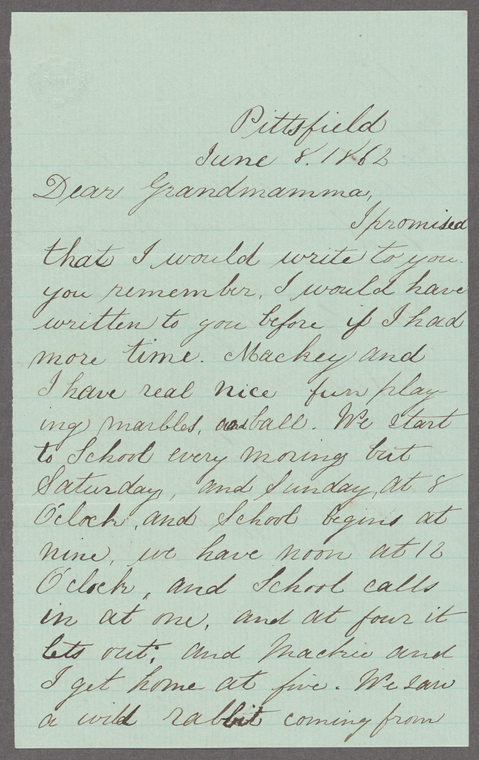 Pittsfield
June 8. 1862
Dear Grandmamma,
I promised
that I would write to you.
you remember, I would have
written to you before if I had
more time. Mackey and
I have real nice fun play-
ing marbles, and ball. We start
to School every moring but
Saturday, and Sunday, at 8
O'cloch, and School begins at
nine, we have noon at 12
O'clock, and School calls
in at one, and at four it
lets out; and Mackie and
I get home at five. We saw
a wild rabbit coming from